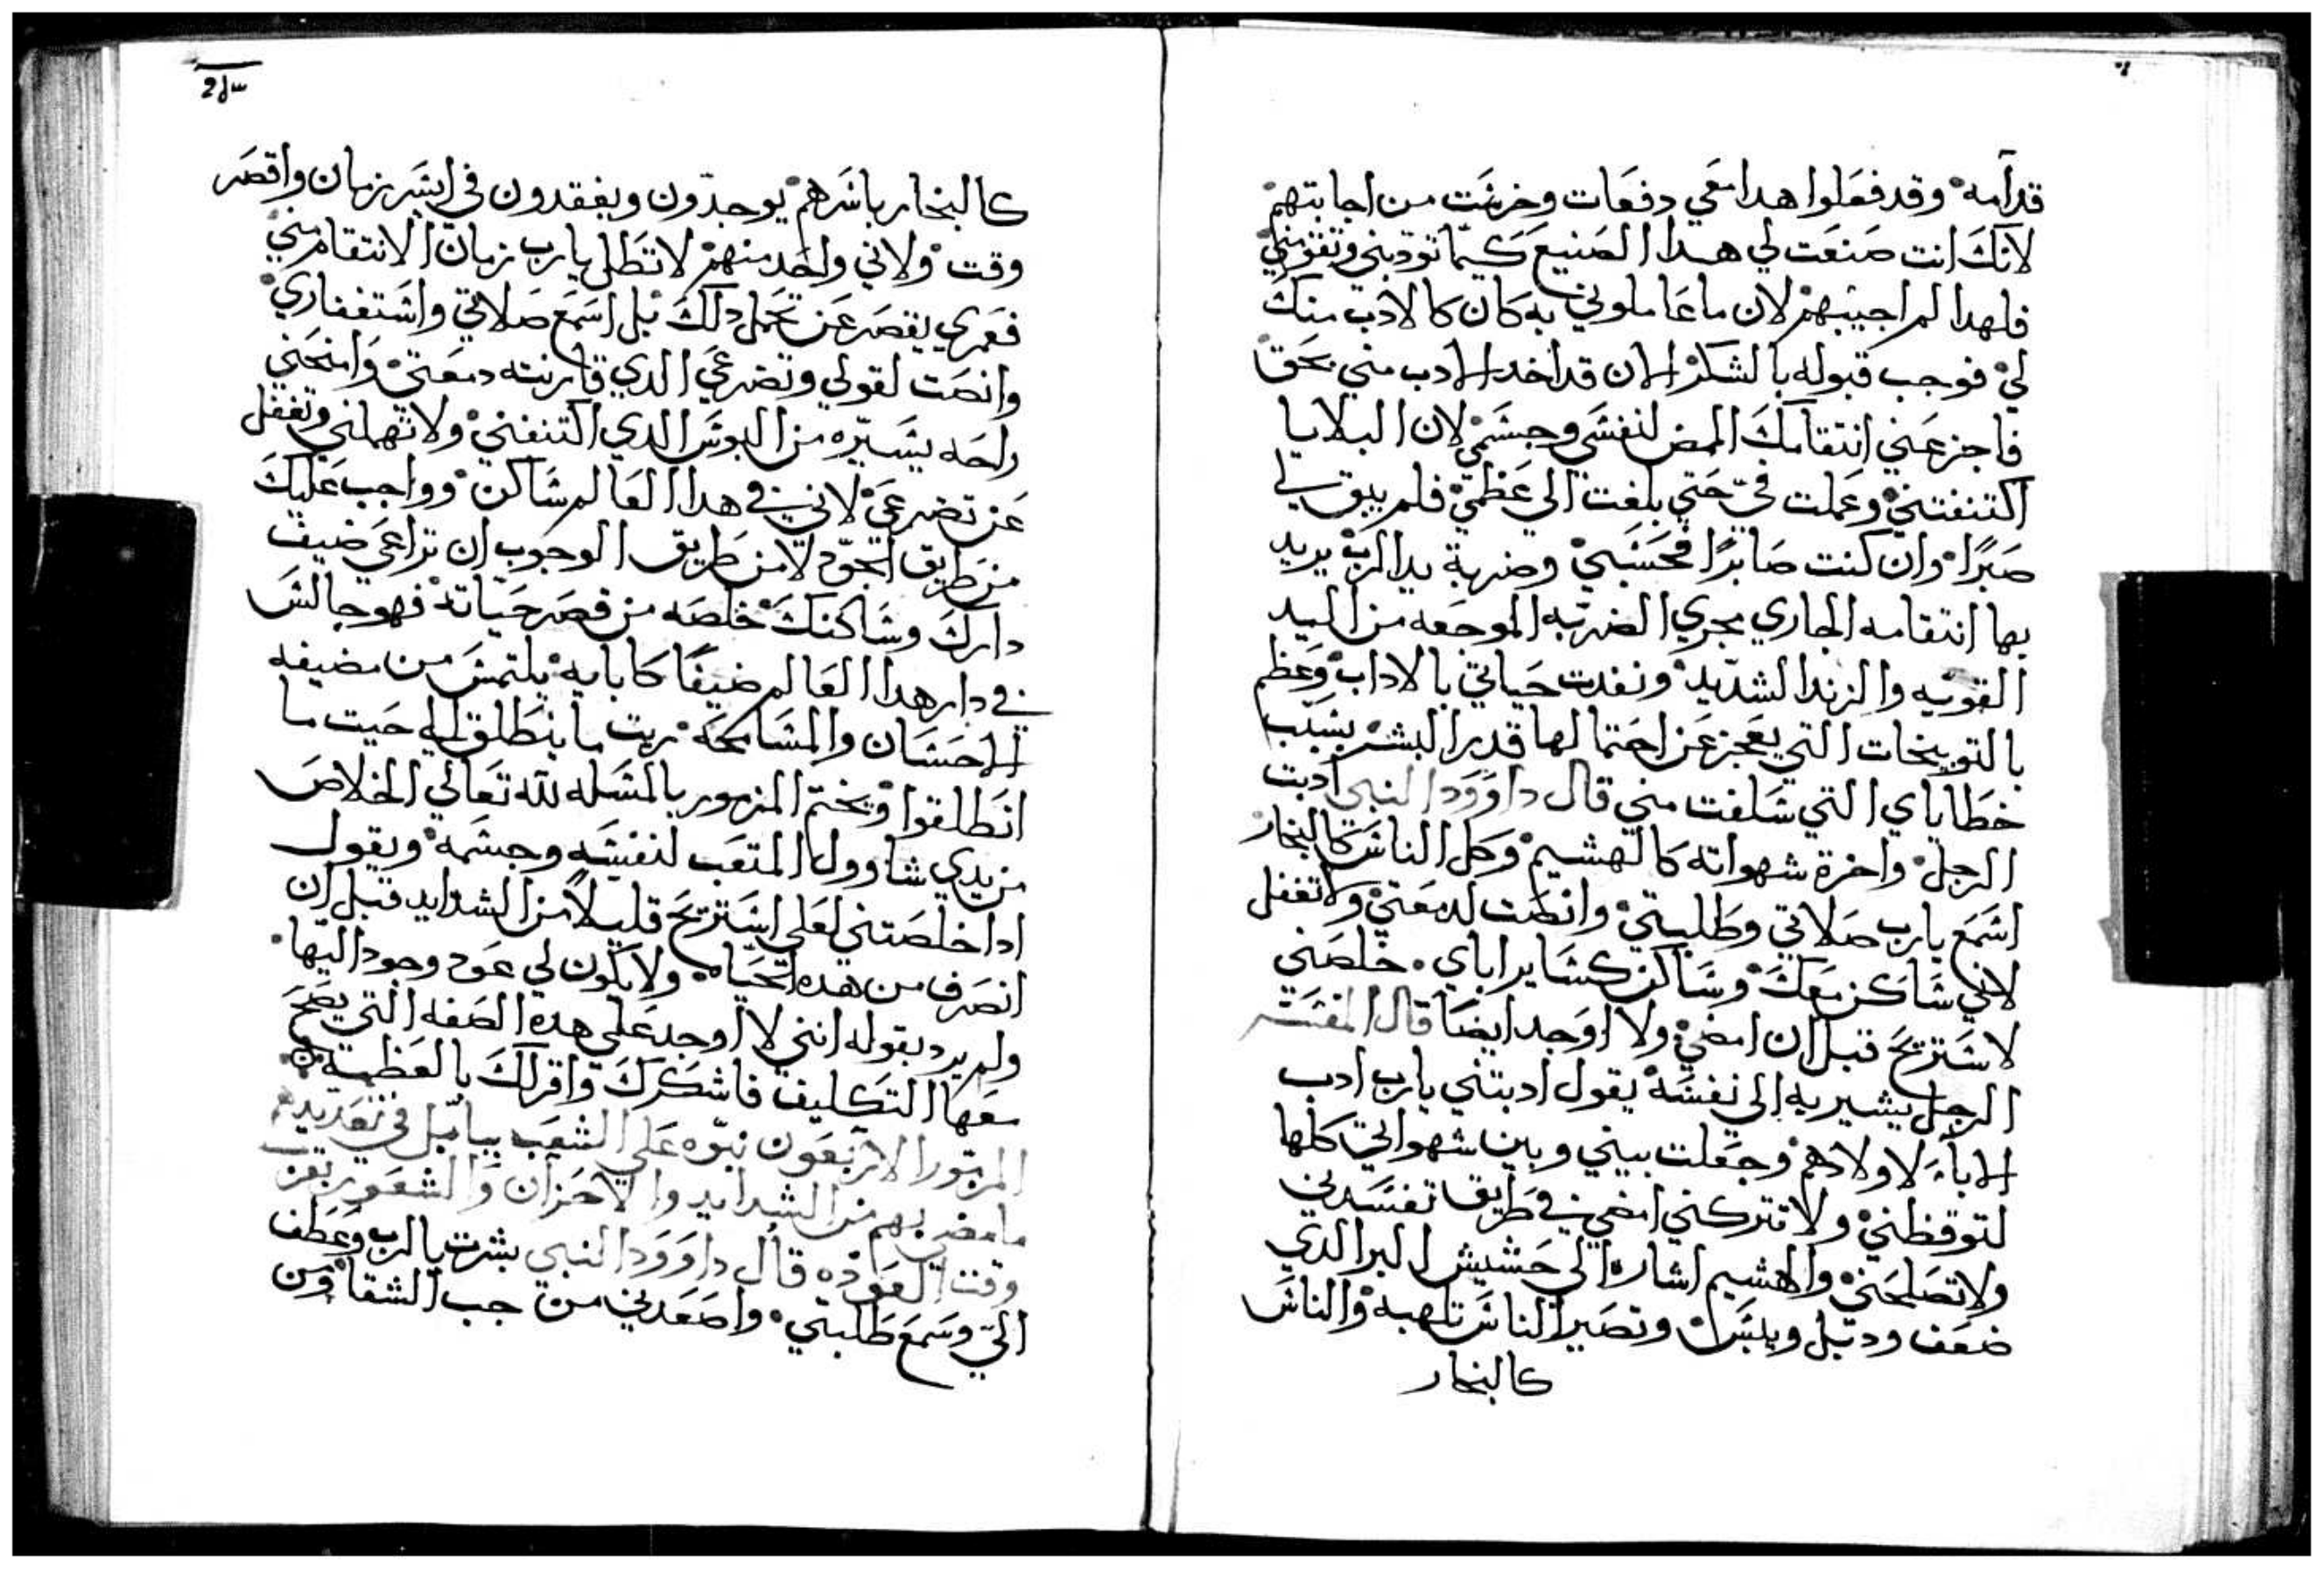 قدآمه وقد فعَلوا هدا معَي دفعَات وخرسَت من اجابتهم
لانكَ انت صَنعَت لي هدا الصَنيعَ كيما تودبني وتقومني
فلهدا لم اجيبهم لان ما عَاملوني به كان كالادب منكَ
لي فوجب قبوله بالشكر الان قد اخد الادب مني بحَق
فاجز عَني انتقامكَ الممض لنفسَي وجسَمي لان البلايا
اكتنفتني وعَملت فيّ حَتي بلغت الي عَظمي فلم يبق لي
صَبرًا وان كنت صَابرًا فحَسَبي وضربة يد الرب يريد
بها انتقامه الجاري مجري الضربه الموجعَه من اليد
القويه والزند الشديد ونفدت حَياتي بالاداب وعَظم
بالتوبيخات التي يعَجز عَن احَتمالها قدر البشر بسَبب
خطاياي التي سَلفت مني قال داوَوَد النبي ادبت
الرجل واخزة شهواته كالهشيم وكل الناسَ كالبخار
اسَمَع يارب صَلاتي وطلبتي وانصَت لدمعَتي ولا تغفل
لاني سَاكن معَكَ وسَاكن كسَاير اباي خلصَني
لاسَتريحَ قبل ان امضي ولا اوَجد ايضَا قال المفسَر
الرجل يشير به الي نفسَه يقول ادبتني يارب ادب
الاباءَ لاولادهم وجعَلت بيني وبين شهواتي كلها
لتوقظني ولا تتركني امضي في طريق تفسَدني
ولا تصَلحَني والهشيم اشاره الي حَشيش البر الدي
ضعَف ودبل ويبسَ وتصَير الناسَ تلهبه والناسَ
كالبخار
سط2
كالبخار باسَرهم يوجدّون ويفقدون في ايسَر زمان واقصَر
وقت ولاني واحَد منهم لا تطل يارب زمان الانتقام مني
فعَمري يقصَر عَن تحَمل دلكَ بل اسَمَع صَلاتي واسَتغفاري
وانصَت لقولي وتضرعَي الدي قارنته دمعَتي وَامنحَني
راحَه يسَيره من البوسَ الدي اكتنفني ولا تهملني وتغفل
عَن تضرعَي لاني في هدا العَالم سَاكن وواجب عَليكَ
من طريق الجود لا من طريق الوجوب ان تراعَي ضيف
داركَ وسَاكنكَ خلصَه من قصَر حَياته فهو جالسَ
في دار هدا العَالم ضيفًا كابايه يلتمسَ من مضيفه
الاحَسَان والمسَامحَه ريت ما ينطلق الي حَيت ما
انطلقوا ويختم المزمور بالمسَله لله تعَالي الخلاصَ
من يدي شاوول المتعَب لنفسَه وجسَمه ويقول
ادا خلصَتني لعَلي اسَتريحَ قليلاً من الشدايد قبل ان
انصَرف من هده الحَياه ولا يكون لي عَود وجود اليها
ولم يرد بقوله انني لا اوجد عَلي هده الصَفه التي يصَحَ
معَها التكليف فاشكركَ واقر لكَ بالعَظمه
المزمور الاربعَون نبوه عَلي الشعَب ببابل في تعَديده
ما مضي بهم من الشدايد والاحَزان والشعَور بقرب
وقت العَوَده قال داوَوَد النبي بشرت بالرب وعَطف
اليّ وسَمَع طلبتي واصَعَدني من جب الشقا ومن